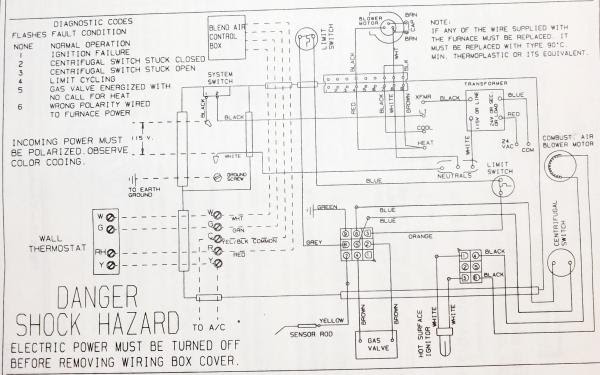 DIAGNOSTIC CODES
FLASHES FAULT CONDITION
NONE NORMAL OPERATION
1 IGNITION FAILURE
2 CENTRIFUGAL SWITCH STUCK CLOSED
3 CENTRIFUGAL SWITCH STUCK OPEN
4 LIMIT CYCLING
5 GAS VALVE ENERGIZED WITH
NO CALL FOR HEAT
6 WRONG POLARITY WIRED
TO FURNACE POWER
INCOMING POWER MUST
BE POLARIZED. OBSERVE
COLOR CODING.
115 V.
BLEND AIR
CONTROL
BOX
SYSTEM
SWITCH
BLACK
BLACK
WHITE
TO EARTH
GROUND
GROUND
SCREW
LIMIT
SWITCH
BLOWER
MOTOR
BRN
CAP
BRN
BLACK
WHT
BLK
RED
BLACK
WHITE
BLACK
XFMR
COOL
HEAT
NOTE:
IF ANY OF THE WIRE SUPPLIED WITH
THE FURNACE MUST BE REPLACED. IT
MUST BE REPLACED WITH TYPE 90°C.
MIN. THERMOPLASTIC OR ITS EQUIVALENT.
TRANSFORMER
BLACK
115V OR LINE
24V OR SEC.
OR LOAD
BLUE
RED
WHITE
24
VAC
COM
NEUTRALS
LIMIT
SWITCH
COMBUST. AIR
BLOWER MOTOR
CENTRIFUGAL
SWITCH
BLUE
BLUE
BLUE
ORANGE
GREEN
GREY
WALL
THERMOSTAT
W
G
RH
Y
W
G
C
R
Y
WHT
GRN
YEL/BLK COMMON
RED
TO A/C
BLACK
BLACK
YELLOW
SENSOR ROD
BROWN
BROWN
GAS
VALVE
HOT SURFACE
IGNITOR
WHITE
WHITE
DANGER
SHOCK HAZARD
ELECTRIC POWER MUST BE TURNED OFF
BEFORE REMOVING WIRING BOX COVER.